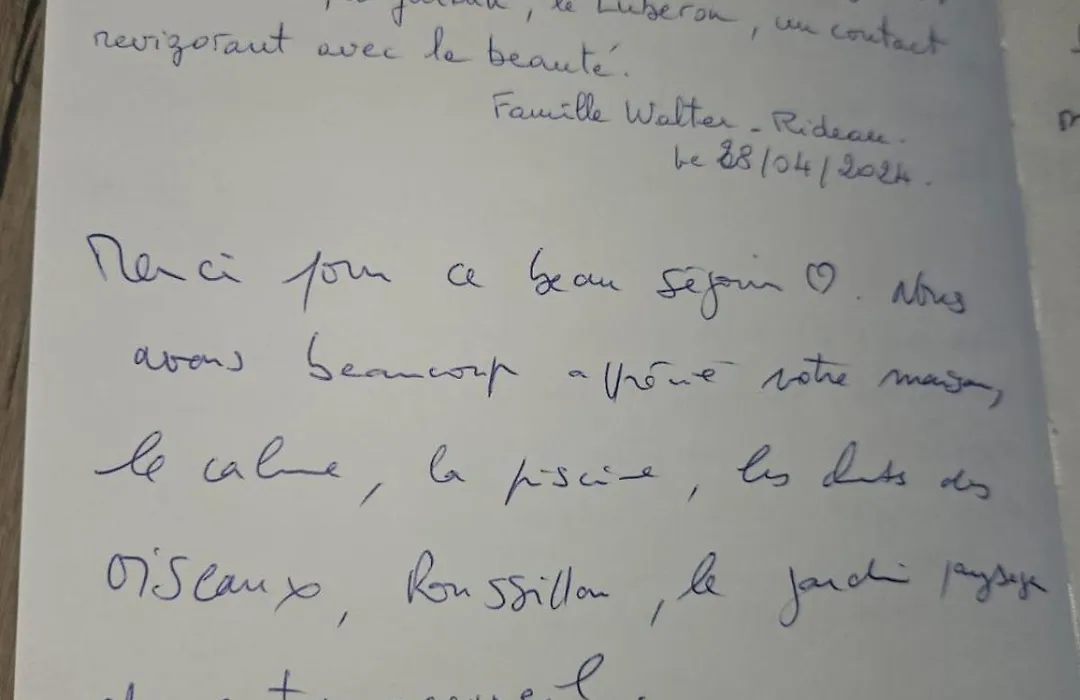 le Luberon, un contact
revigorant avec la beauté.
Famille Walter - Rideau.
Le 28/04/2024.
Merci pour ce beau séjour ♡. Nous
avons beaucoup apprécié votre maison,
le calme, la piscine, les chants des
oiseaux, Roussillon, le jardin paysagé